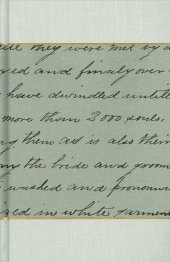 they were met by a
and finally over
have dwindled until
more than 2000 souls.
them as is also them
the bride and groom
washed and pronounce
in white garmen